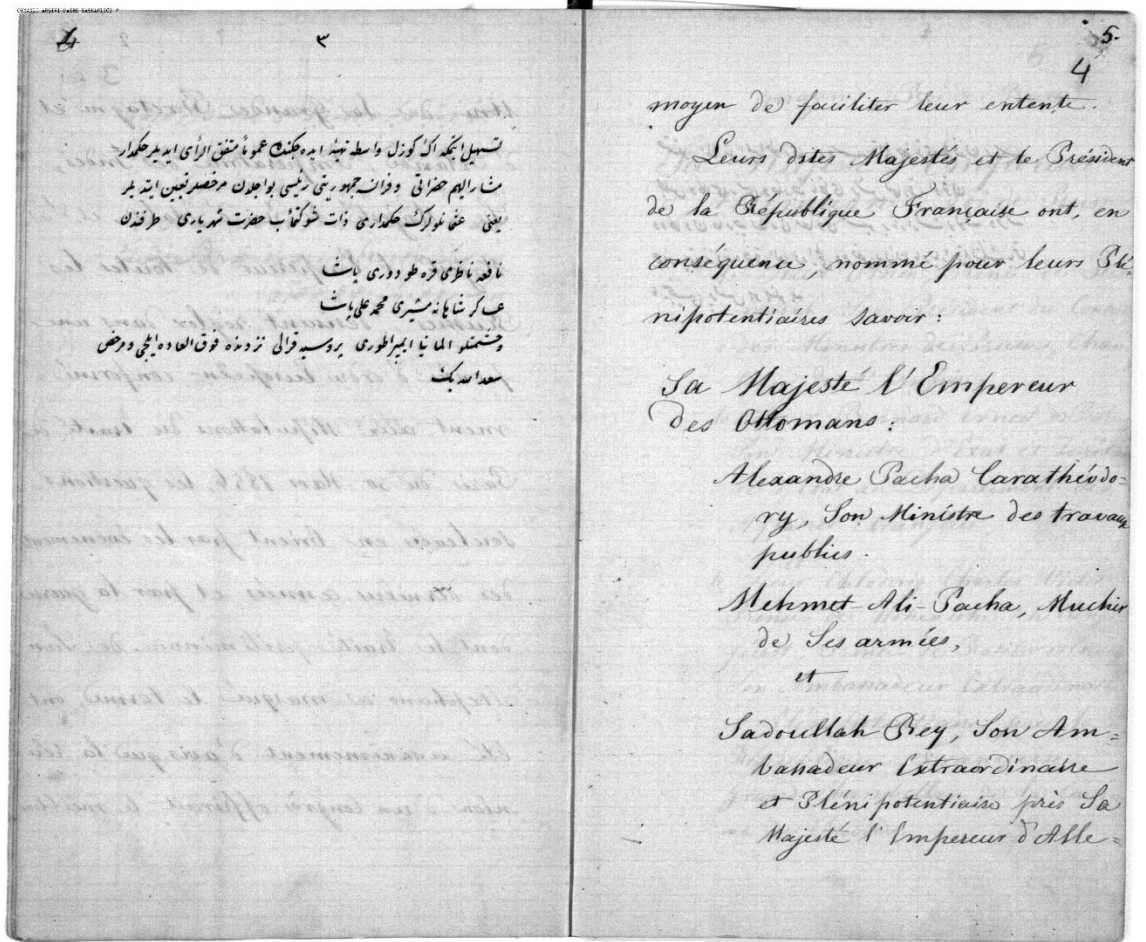 ٣
تسهیل ایتمكه اك كوزل واسطه تهیهٔ ایده جكنده عموماً متفق الرأی ایدیلر حكمدار
مشارالیهم حضراتی و فرانسه جمهوریتی رئیسی بو اجلدن مرخصلر تعیین ایتدیلر
یعنی عثمانلولرك حكمداری ذات شوكتمآب حضرت شهریاری طرفندن
نافعه ناظری قره طودوری پاشا
عساكر شاهانه مشیری محمد علی پاشا
و حشمتلو المانیا ایمپراطوری پروسیه قرالی نزدنده فوق العاده ایلچی و مرخص
سعد الله بك
5.
4
moyen de faciliter leur entente.
Leurs dites Majestés et le Président
de la République Française ont, en
conséquence, nommé pour leurs Plé-
nipotentiaires savoir:
Sa Majesté l'Empereur
des Ottomans:
Alexandre Pacha Carathéodo-
ry, Son Ministre des travaux
publics.
Mehmet-Ali-Pacha, Muchir
de Ses armées,
et
Sadoullah Bey, Son Am=
bassadeur Extraordinaire
et Plénipotentiaire près Sa
Majesté l'Empereur d'Alle=